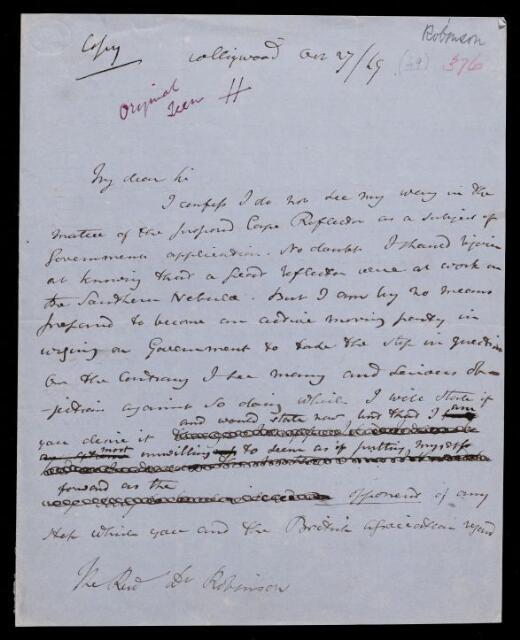 Robinson
Copy
Collingwood Oct 27/49
(49) 376
Original
Seen H
My dear Sir
I confess I do not see my way in the
matter of the proposed Cape Reflector as a subject of
Government application. No doubt I should rejoice
at knowing that a great reflector were at work on
the Southern Nebulæ. But I am by no means
prepared to become an active moving party in
urging on Government to take the step in question
On the contrary I see many and serious ob-
-jections against so doing which I will state if
and would state now, but that I am
you desire it
most unwilling to seem as if putting myself
forward as the
opponent of any
step which you and the British Association regard
The Revd Dr Robinson